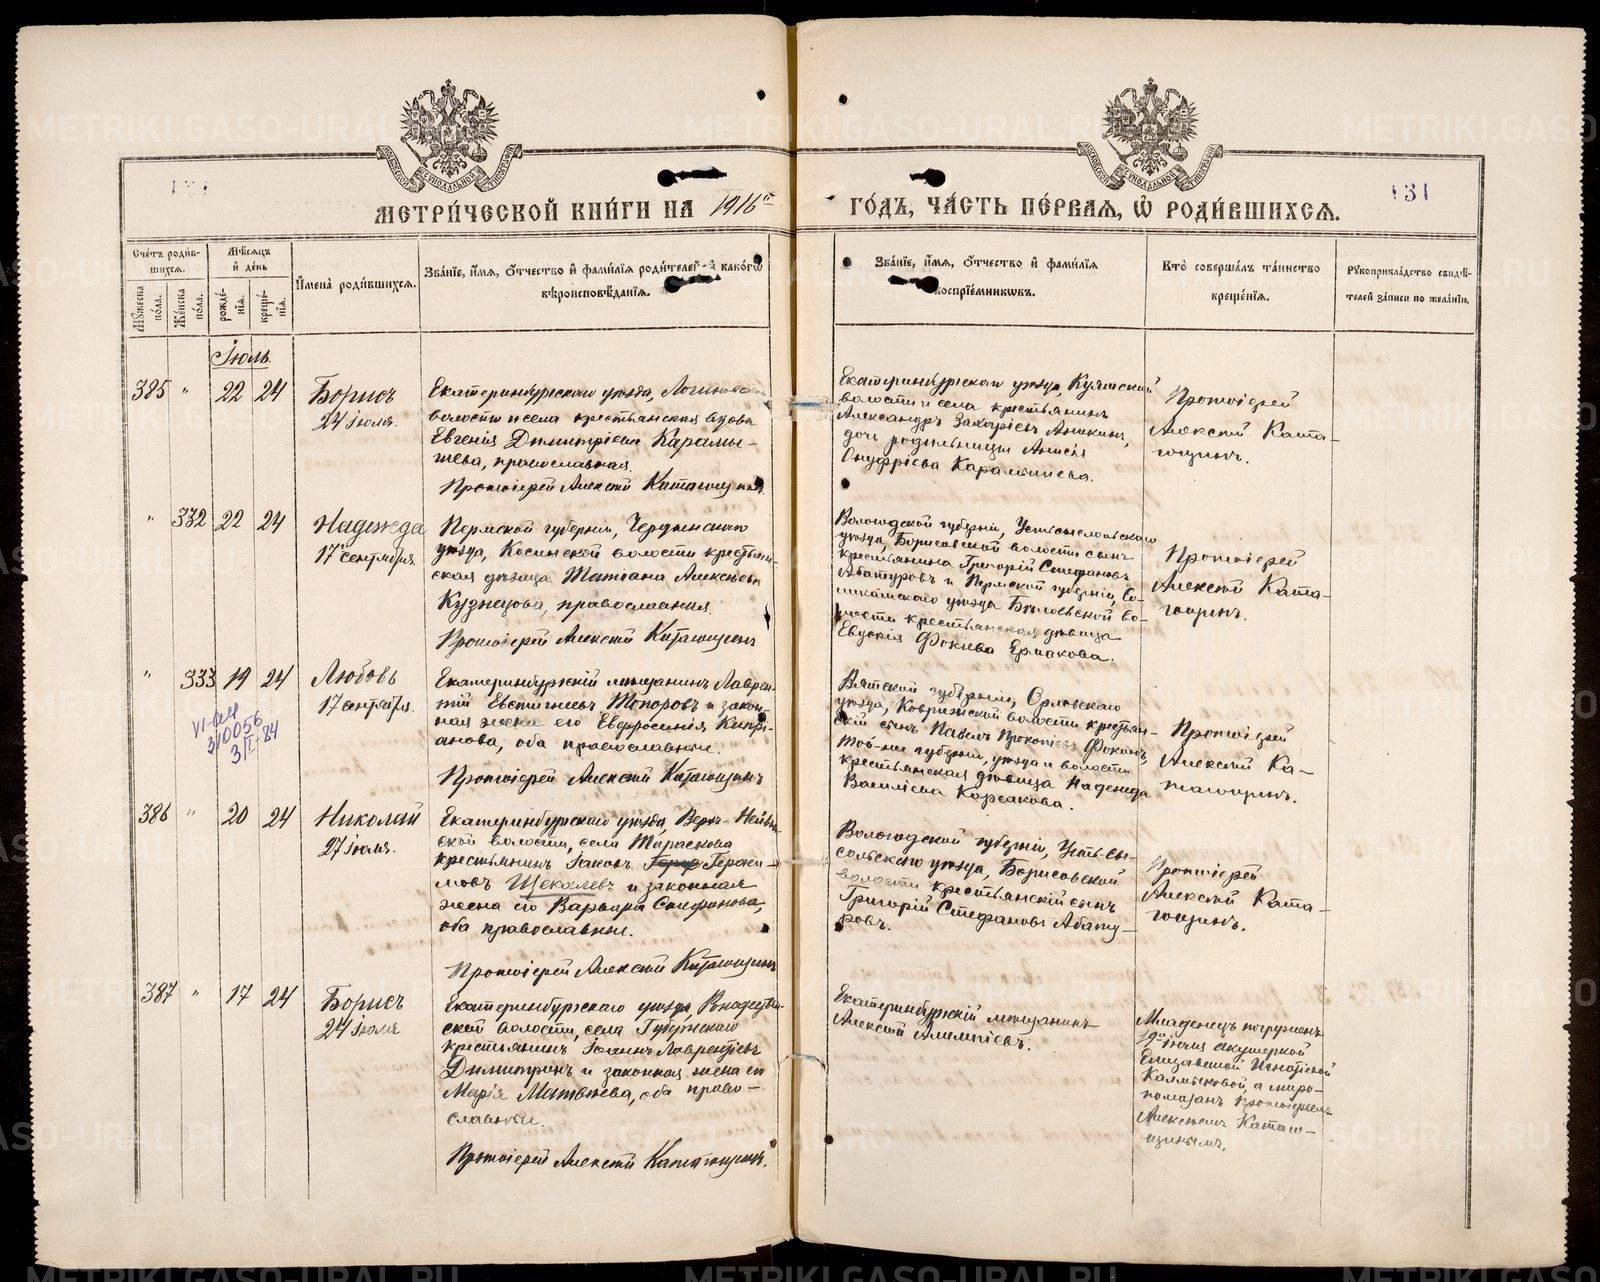 МОСКОВСКОЙ СѴНОДАЛЬНОЙ ТИПОГРАФІИ
МОСКОВСКОЙ СѴНОДАЛЬНОЙ ТИПОГРАФІИ
131
МЕТРИ́ЧЕСКОЙ КНИ́ГИ НА 1916й
ГО́ДЪ, ЧА́СТЬ ПЕ́РВАѦ, Ѡ҆ РОДИ́ВШИХСѦ.
Сче́тъ роди́в-
шихсѧ.
Мѣ́сѧцъ
и҆ де́нь
Мꙋ́жеска по́ла.
Же́нска по́ла.
рожде́-нїѧ.
креще́-нїѧ.
И҆мена̀ роди́вшихсѧ.
Зва́нїе, и҆́мѧ, ѻ҆́тчество и҆ фами́лїѧ роди́телей и҆ како́гѡ
вѣроисповѣ́данїѧ.
Зва́нїе, и҆́мѧ, ѻ҆́тчество и҆ фами́лїѧ
воспрїе́мникѡвъ.
Кто̀ соверша́лъ та́инство
креще́нїѧ.
Рꙋкоприкла́дство свидѣ́-
телей за́писи по жела́нїю.
Іюль.
385 " 22 24
Борисъ
24 Іюля.
Екатеринбургскаго уѣзда, Логиновской
волости и села крестьянская вдова
Евгенія Димитріева Карамы-
шева, православная.
Протоіерей Алексій Каташинъ
Екатеринбургскаго уѣзда, Куяшской
волости и села крестьянинъ
Александръ Захаріевъ Аникинъ,
дочь родильницы Анисія
Онуфріева Карамышева.
Протоіерей
Алексій Ката-
шинъ.
" 332 22 24
Надежда
17 сентября.
Пермской губерніи, Чердынскаго
уѣзда, Косинской волости крестьян-
ская дѣвица Татіана Алексѣева
Кузнецова, православная.
Протоіерей Алексій
Вологодской губерніи, Устьсысольскаго
уѣзда, Борисовской волости сынъ
крестьянина Григорій Стефановъ
Абатуровъ и Пермской губерніи, Со-
ликамскаго уѣзда волости крестьянская дѣвица
Фокиева Ермакова.
Протоіерей
Алексій
" 333 19 24
Любовь
17 сентября.
VI-АИ
310056
3/I-84
Екатеринбургскій мѣщанинъ Лаврен-
тій Евстигнеевъ Топоровъ и закон-
ная жена его Евфросинія Кипрі-
анова, оба православные.
Протоіерей Алексій
Вятской губерніи, Орловскаго
уѣзда, волости крестьян-
скій сынъ Павелъ Прокопіевъ Фокинъ,
той-же губерніи, уѣзда и волости
крестьянская дѣвица Надежда
Василіева Корсакова.
Протоіерей
Алексій
386 " 20 24
Николай
27 Іюля.
Екатеринбургскаго уѣзда, Верх-Нейвин-
ской волости, села Тараскова
крестьянинъ Іаковъ Гераси-
мовъ Щекалевъ и законная
жена его Варвара Стефанова,
оба православные.
Протоіерей Алексій
Вологодской губерніи, Усть-сы-
сольскаго уѣзда, Борисовской
волости крестьянскій сынъ
Григорій Стефановъ Абату-
ровъ.
Протоіерей
Алексій
387 " 17 24
Борисъ
24 Іюля
Екатеринбургскаго уѣзда, Рождествен-
ской волости, села Губернскаго
крестьянинъ Іоаннъ Лаврентіевъ
Димитринъ и законная жена его
Марія Матвѣева, оба право-
славные.
Протоіерей Алексій
Екатеринбургскій мѣщанинъ
Алексій Алимпіевъ.
Младенецъ погруженъ
19го іюля акушеркой
Елизаветой Игнатіевой
Калмыковой, а миро-
помазанъ Протоіереемъ
Алексѣемъ